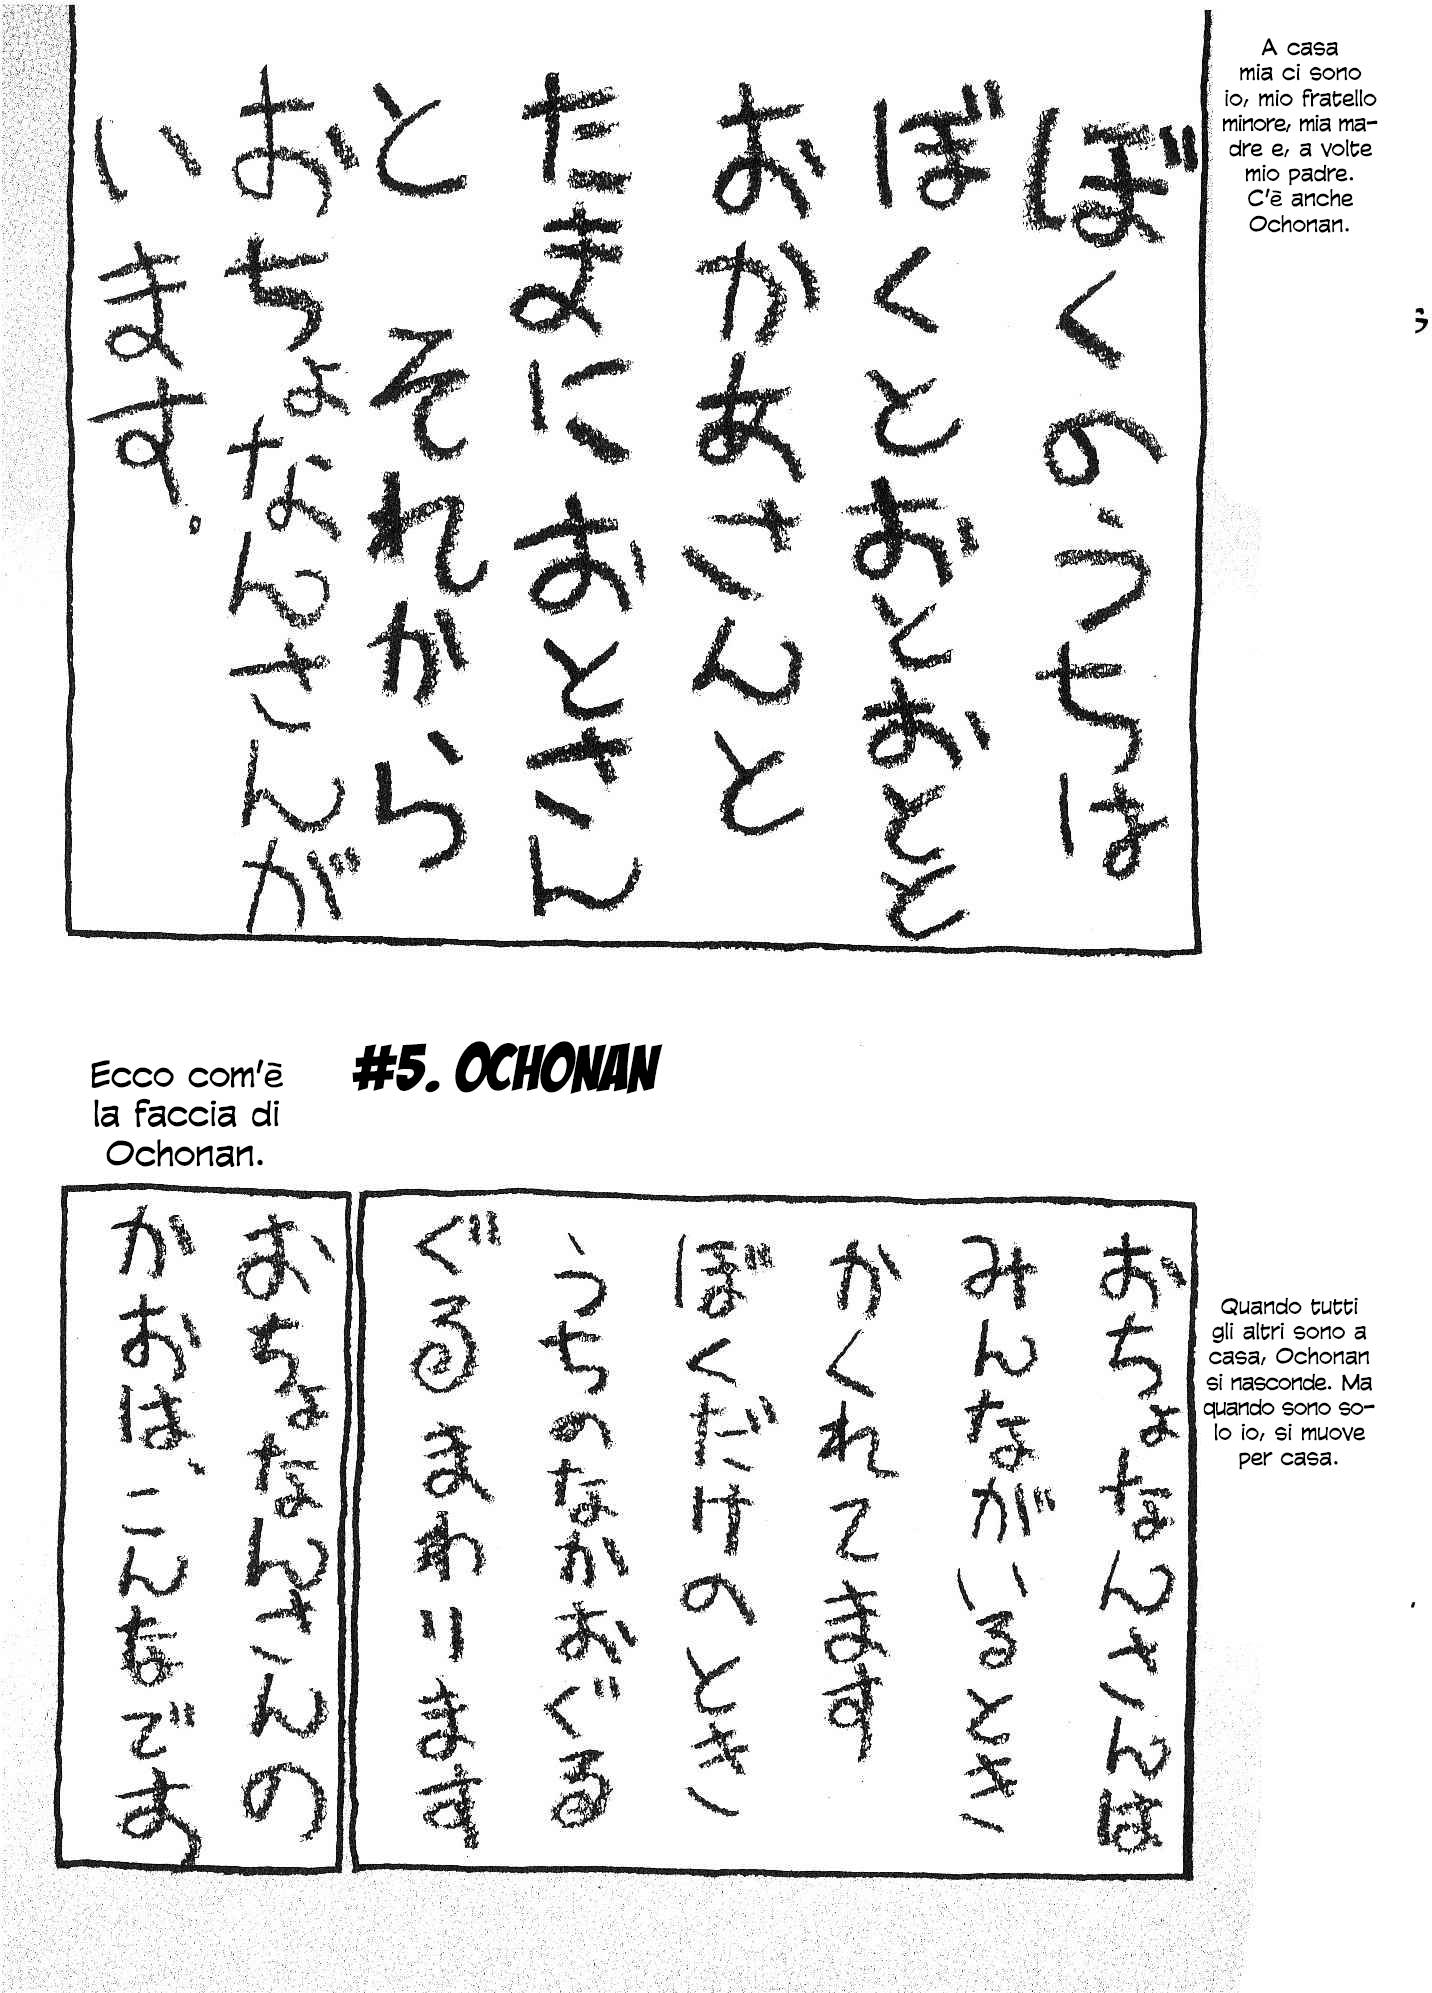 A casa
mia ci sono
io, mio fratello
minore, mia ma-
dre e, a volte
mio padre.
C'è anche
Ochonan.
ぼくのうちは
ぼくとおとおとと
おかあさんと
たまにおとさん
と それから
おちょなんさんが
います。
#5. OCHONAN
Quando tutti
gli altri sono a
casa, Ochonan
si nasconde. Ma
quando sono so-
lo io, si muove
per casa.
おちょなんさんは
みんながいるとき
かくれてます
ぼくだけのとき
うちのなかおぐる
ぐるまわります
Ecco com'è
la faccia di
Ochonan.
おちょなんさんの
かおは、こんなです